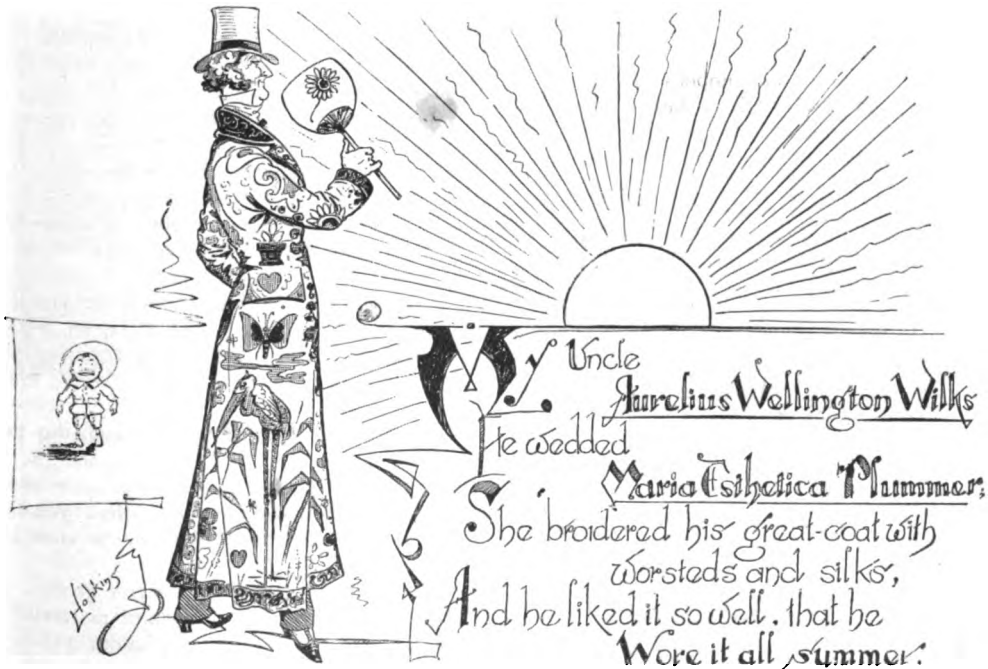 My Uncle
Aurelius Wellington Wilks
He wedded
Maria Esthetica Plummer;
She broidered his great-coat with
worsteds and silks,
And he liked it so well, that he
Wore it all summer.
Hopkins